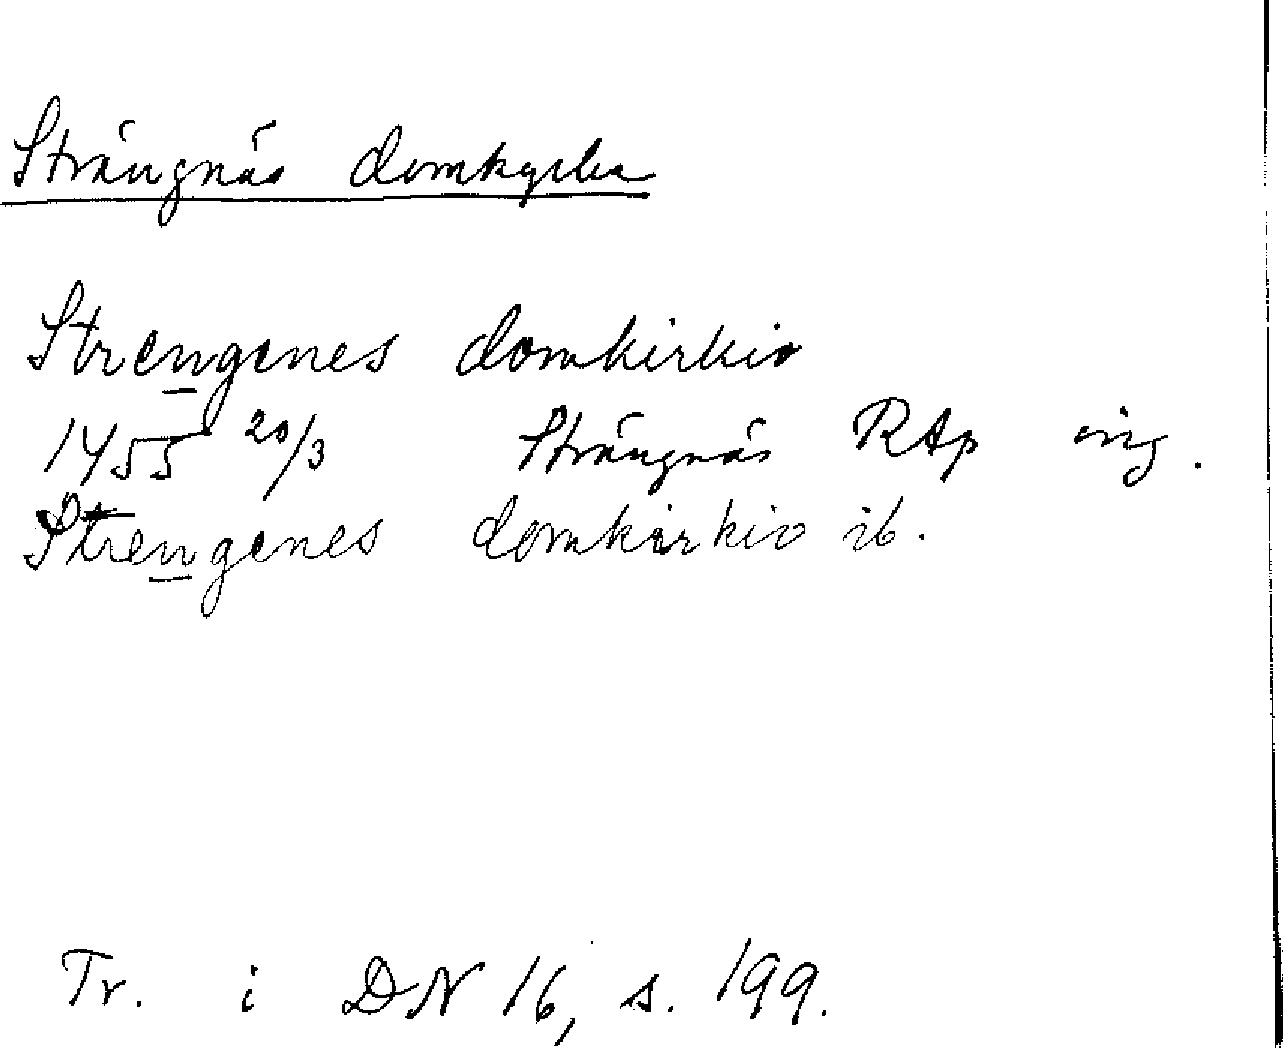 Strängnäs domkyrka
Strengenes domkirkio
1455 20/3 Strängnäs RAp orig.
Strengenes domkirkio ib.
Tr. i DN 16, s. 199.